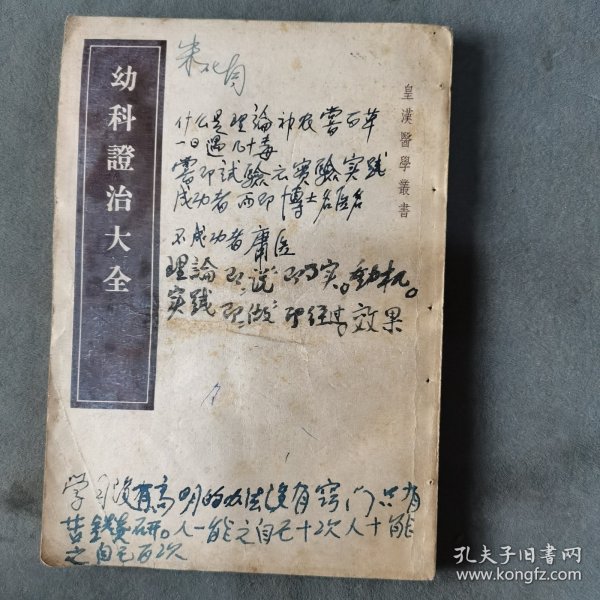 幼科證治大全
皇漢醫學叢書
朱
什么是理論神农嘗百草
一日遇几十毒
嘗即試驗云实验实践
成功者而即博士名医名
不成功者庸医
理論即说即了实。動机。
实践即做即经过效果
学习没有高明的办法没有窍门只有
苦钻研。人一能之自己十次人十能
之自己百次
孔夫子旧书网
www.kongfz.com